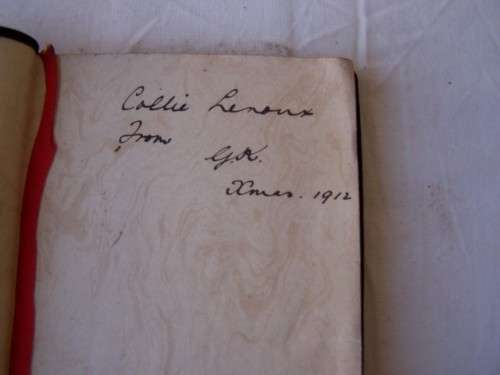 Collie Lenoux
From
G.K.
Xmas. 1912